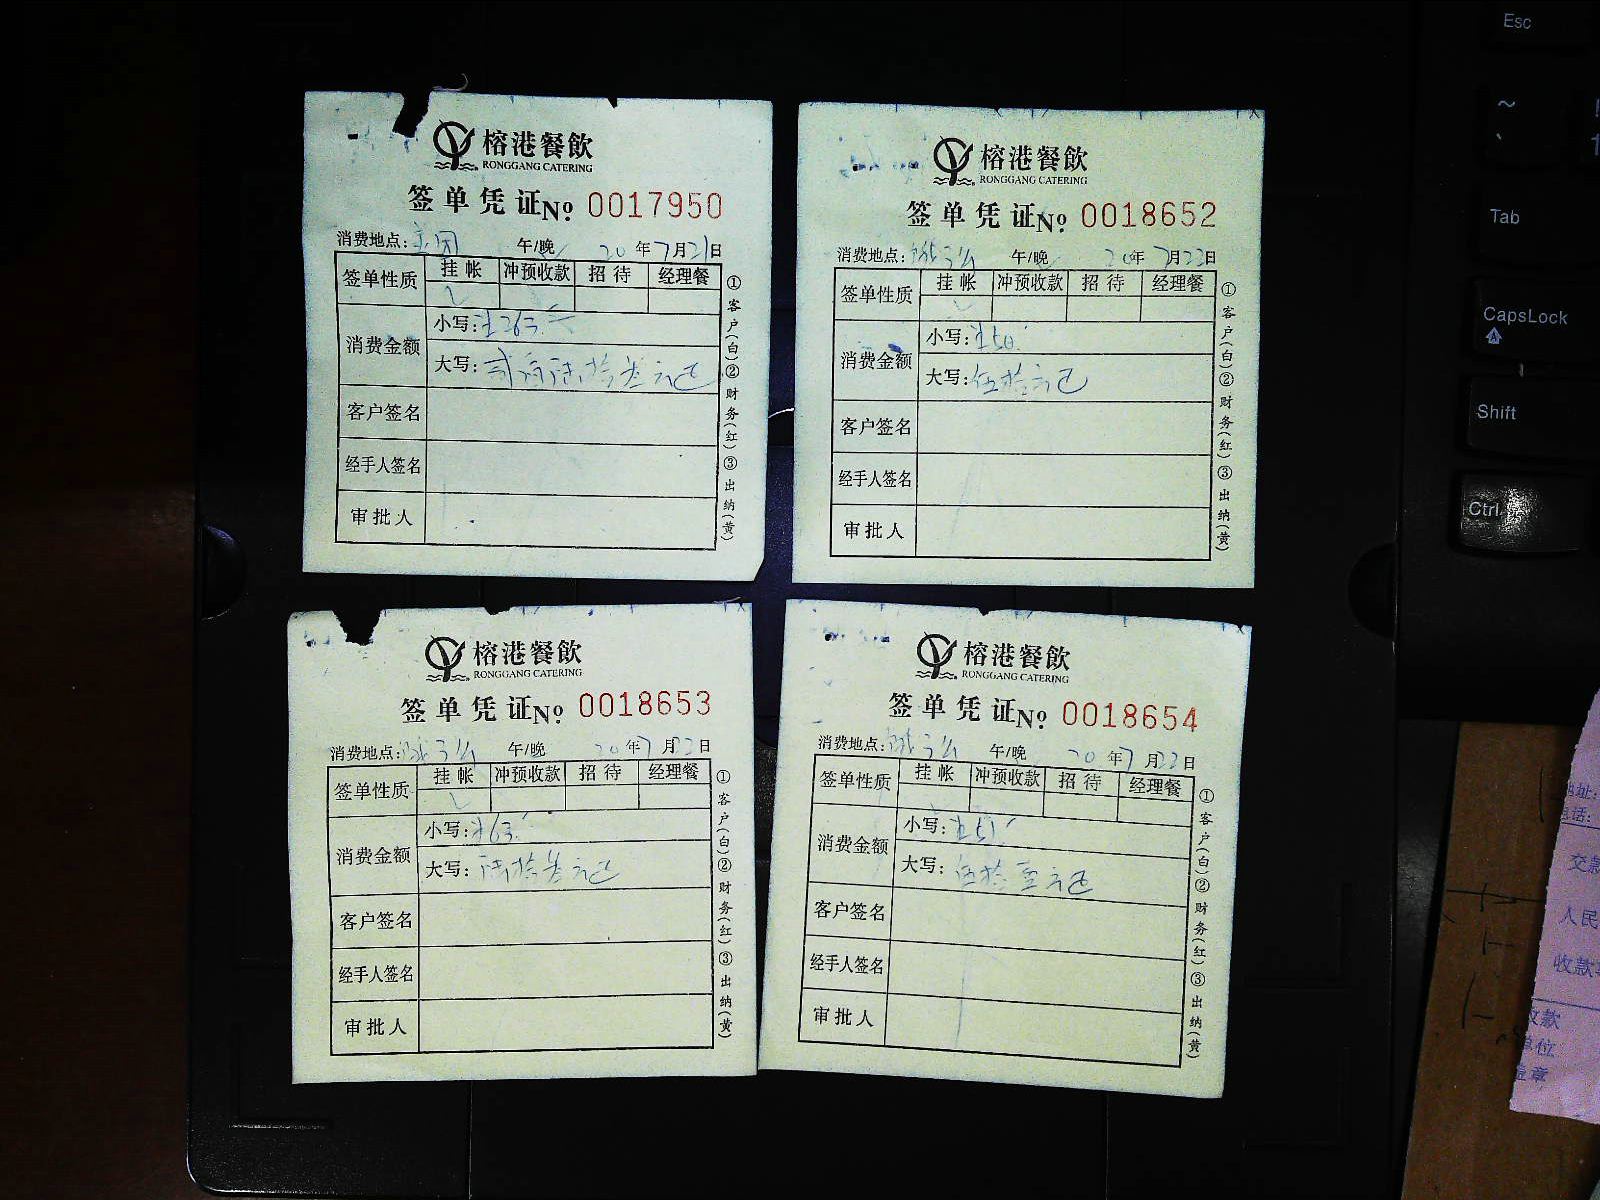 榕港餐飲
RONGGANG CATERING
签单凭证 No 0017950
消费地点: 午/晚 20 年 7 月 21 日
签单性质 挂帐 冲预收款 招待 经理餐
消费金额 小写: ¥263.
大写: 贰佰陆拾叁元正
客户签名
经手人签名
审批人
①客户(白)②财务(红)③出纳(黄)
榕港餐飲
RONGGANG CATERING
签单凭证 No 0018652
消费地点: 午/晚 20 年 7 月 22 日
签单性质 挂帐 冲预收款 招待 经理餐
消费金额 小写: ¥50.
大写: 伍拾元正
客户签名
经手人签名
审批人
①客户(白)②财务(红)③出纳(黄)
榕港餐飲
RONGGANG CATERING
签单凭证 No 0018653
消费地点: 午/晚 20 年 7 月 22 日
签单性质 挂帐 冲预收款 招待 经理餐
消费金额 小写: ¥63.
大写: 陆拾叁元正
客户签名
经手人签名
审批人
①客户(白)②财务(红)③出纳(黄)
榕港餐飲
RONGGANG CATERING
签单凭证 No 0018654
消费地点: 午/晚 20 年 7 月 22 日
签单性质 挂帐 冲预收款 招待 经理餐
消费金额 小写: ¥51.
大写: 伍拾壹元正
客户签名
经手人签名
审批人
①客户(白)②财务(红)③出纳(黄)
Esc
~
`
Tab
CapsLock
Shift
Ctrl
地址:
电话:
交款
人民
收款
收款
单位
盖章